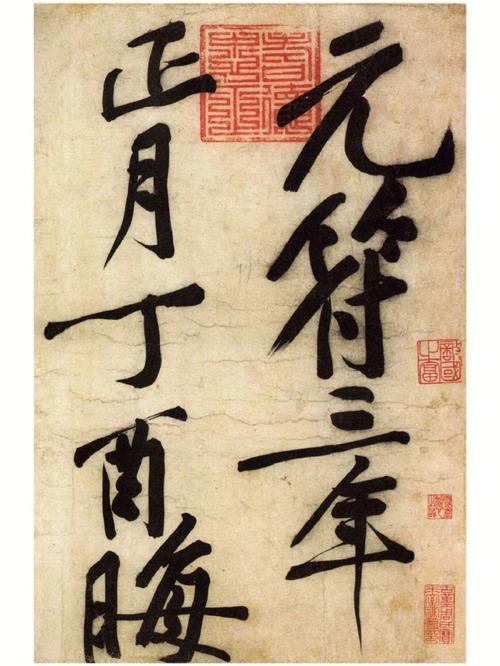 元符三年
正月丁酉晦